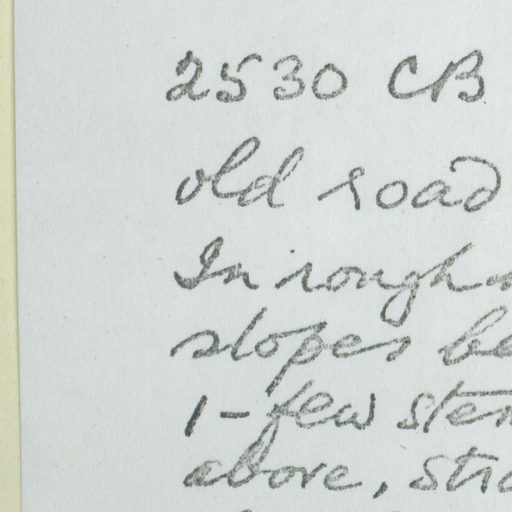 2530 CB
old road
In rough
slopes be
1-few stem
above, stra